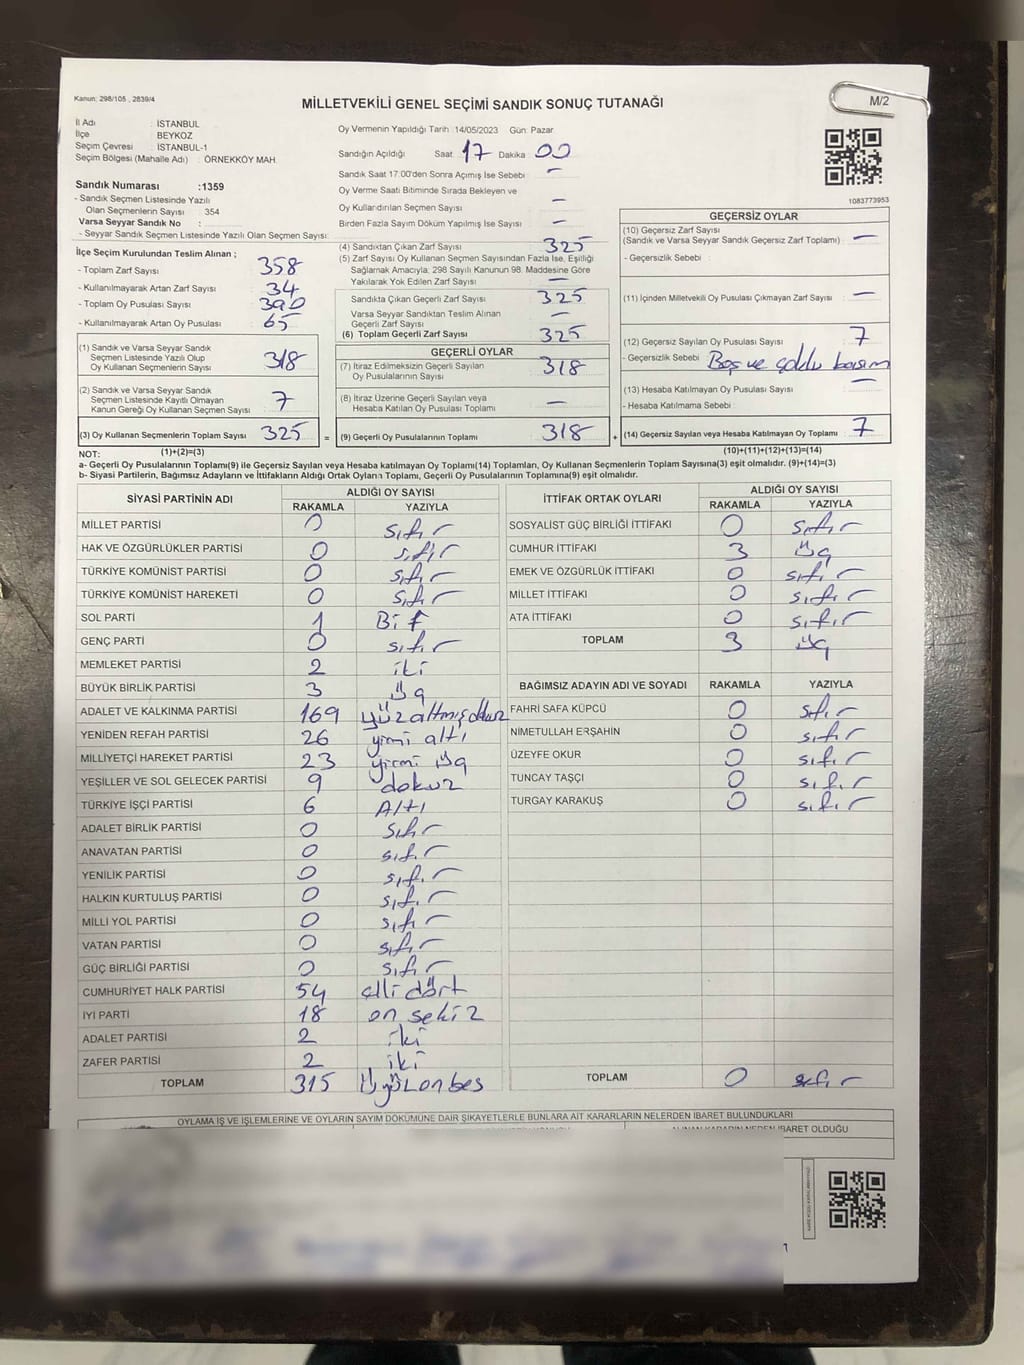 Kanun: 298/105 , 2839/4
MİLLETVEKİLİ GENEL SEÇİMİ SANDIK SONUÇ TUTANAĞI
M/2
İl Adı : İSTANBUL
İlçe BEYKOZ
Seçim Çevresi : İSTANBUL-1
Seçim Bölgesi (Mahalle Adı) : ÖRNEKKÖY MAH.
Sandık Numarası :1359
- Sandık Seçmen Listesinde Yazılı
Olan Seçmenlerin Sayısı : 354
Varsa Seyyar Sandık No :
- Seyyar Sandık Seçmen Listesinde Yazılı Olan Seçmen Sayısı:
Oy Vermenin Yapıldığı Tarih :14/05/2023 Gün: Pazar
Sandığın Açıldığı Saat: 17 Dakika: 00
Sandık Saat 17:00'den Sonra Açımış İse Sebebi : -
Oy Verme Saati Bitiminde Sırada Bekleyen ve
Oy Kullandırılan Seçmen Sayısı : -
Birden Fazla Sayım Döküm Yapılmış İse Sayısı : -
1083773953
İlçe Seçim Kurulundan Teslim Alınan ;
- Toplam Zarf Sayısı : 358
- Kullanılmayarak Artan Zarf Sayısı : 34
- Toplam Oy Pusulası Sayısı : 390
- Kullanılmayarak Artan Oy Pusulası : 65
(1) Sandık ve Varsa Seyyar Sandık
Seçmen Listesinde Yazılı Olup
Oy Kullanan Seçmenlerin Sayısı : 318
(2) Sandık ve Varsa Seyyar Sandık
Seçmen Listesinde Kayıtlı Olmayan
Kanun Gereği Oy Kullanan Seçmen Sayısı : 7
(3) Oy Kullanan Seçmenlerin Toplam Sayısı : 325 =
(1)+(2)=(3)
(4) Sandıktan Çıkan Zarf Sayısı : 325
(5) Zarf Sayısı Oy Kullanan Seçmen Sayısından Fazla İse, Eşitliği
Sağlamak Amacıyla; 298 Sayılı Kanunun 98. Maddesine Göre
Yakılarak Yok Edilen Zarf Sayısı : -
Sandıkta Çıkan Geçerli Zarf Sayısı : 325
Varsa Seyyar Sandıktan Teslim Alınan
Geçerli Zarf Sayısı : -
(6) Toplam Geçerli Zarf Sayısı : 325
GEÇERLİ OYLAR
(7) İtiraz Edilmeksizin Geçerli Sayılan
Oy Pusulasının Sayısı : 318
(8) İtiraz Üzerine Geçerli Sayılan veya
Hesaba Katılan Oy Pusulası Toplamı : -
(9) Geçerli Oy Pusulalarının Toplamı : 318 +
GEÇERSİZ OYLAR
(10) Geçersiz Zarf Sayısı
(Sandık ve Varsa Seyyar Sandık Geçersiz Zarf Toplamı) : -
- Geçersizlik Sebebi :
(11) İçinden Milletvekili Oy Pusulası Çıkmayan Zarf Sayısı : -
(12) Geçersiz Sayılan Oy Pusulası Sayısı : 7
- Geçersizlik Sebebi : Boş ve çoklu basım
(13) Hesaba Katılmayan Oy Pusulası Sayısı : -
- Hesaba Katılmama Sebebi :
(14) Geçersiz Sayılan veya Hesaba Katılmayan Oy Pusulası Toplamı : 7
(10)+(11)+(12)+(13)=(14)
NOT:
a- Geçerli Oy Pusulalarının Toplamı(9) ile Geçersiz Sayılan veya Hesaba katılmayan Oy Toplamı(14) Toplamları, Oy Kullanan Seçmenlerin Toplam Sayısına(3) eşit olmalıdır. (9)+(14)=(3)
b- Siyasi Partilerin, Bağımsız Adayların ve İttifakların Aldığı Ortak Oyların Toplamı, Geçerli Oy Pusulalarının Toplamına(9) eşit olmalıdır.
SİYASİ PARTİNİN ADI ALDIĞI OY SAYISI
RAKAMLA YAZIYLA
MİLLET PARTİSİ 0 sıfır
HAK VE ÖZGÜRLÜKLER PARTİSİ 0 sıfır
TÜRKİYE KOMÜNİST PARTİSİ 0 sıfır
TÜRKİYE KOMÜNİST HAREKETİ 0 sıfır
SOL PARTİ 1 Bir
GENÇ PARTİ 0 sıfır
MEMLEKET PARTİSİ 2 iki
BÜYÜK BİRLİK PARTİSİ 3 Üç
ADALET VE KALKINMA PARTİSİ 169 yüzaltmışdokuz
YENİDEN REFAH PARTİSİ 26 yirmi altı
MİLLİYETÇİ HAREKET PARTİSİ 23 yirmi üç
YEŞİLLER VE SOL GELECEK PARTİSİ 9 dokuz
TÜRKİYE İŞÇİ PARTİSİ 6 Altı
ADALET BİRLİK PARTİSİ 0 sıfır
ANAVATAN PARTİSİ 0 sıfır
YENİLİK PARTİSİ 0 sıfır
HALKIN KURTULUŞ PARTİSİ 0 sıfır
MİLLİ YOL PARTİSİ 0 sıfır
VATAN PARTİSİ 0 sıfır
GÜÇ BİRLİĞİ PARTİSİ 0 sıfır
CUMHURİYET HALK PARTİSİ 54 elli dört
İYİ PARTİ 18 on sekiz
ADALET PARTİSİ 2 iki
ZAFER PARTİSİ 2 iki
TOPLAM 315 Üçyüzonbeş
İTTİFAK ORTAK OYLARI ALDIĞI OY SAYISI
RAKAMLA YAZIYLA
SOSYALİST GÜÇ BİRLİĞİ İTTİFAKI 0 sıfır
CUMHUR İTTİFAKI 3 Üç
EMEK VE ÖZGÜRLÜK İTTİFAKI 0 sıfır
MİLLET İTTİFAKI 0 sıfır
ATA İTTİFAKI 0 sıfır
TOPLAM 3 Üç
BAĞIMSIZ ADAYIN ADI VE SOYADI RAKAMLA YAZIYLA
FAHRİ SAFA KÜPCÜ 0 sıfır
NİMETULLAH ERŞAHİN 0 sıfır
ÜZEYFE OKUR 0 sıfır
TUNCAY TAŞÇI 0 sıfır
TURGAY KARAKUŞ 0 sıfır
TOPLAM 0 sıfır
OYLAMA İŞ VE İŞLEMLERİNE VE OYLARIN SAYIM DÖKÜMÜNE DAİR ŞİKAYETLERLE BUNLARA AİT KARARLARIN NELERDEN İBARET BULUNDUKLARI
ALINAN KARARIN NEDEN İBARET OLDUĞU